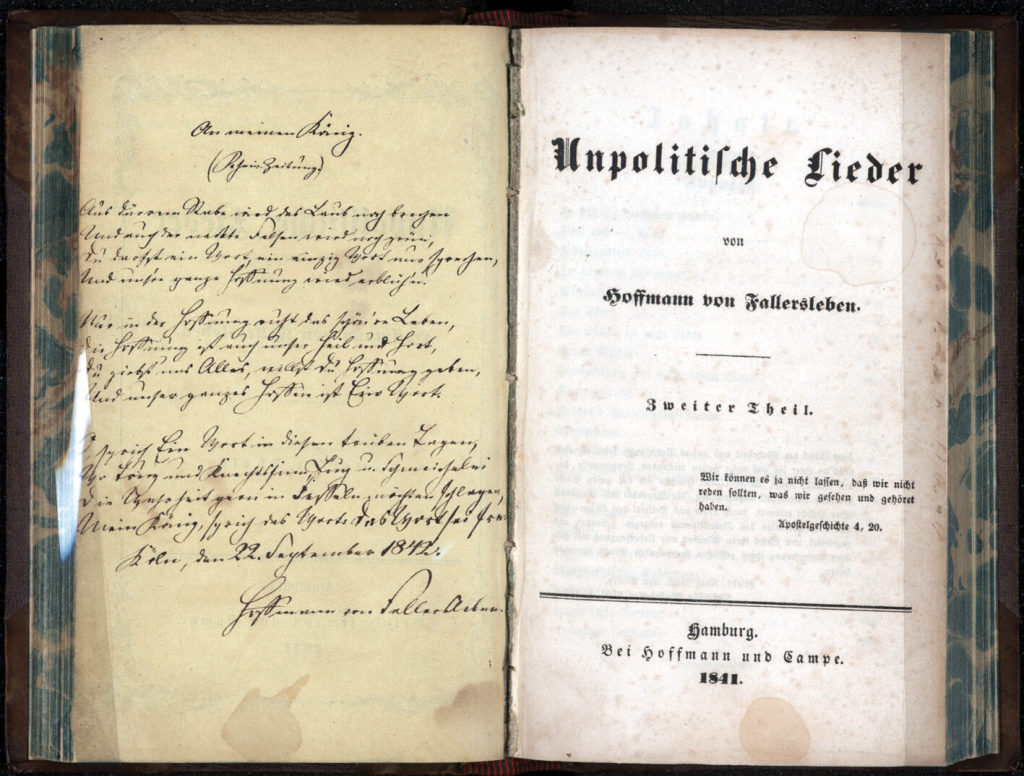 An meinen König.
(Rhein. Zeitung)
Aus dürrem Stabe wird das Laub noch brechen
Und auch der nackte Felsen wird noch grün,
Du darfst ein Wort, ein einzig Wort nur sprechen,
Und unsre ganze Hoffnung wird erblüh'n.
Nur in der Hoffnung ruht das schön're Leben,
Die Hoffnung ist auch unser Heil und Hort,
Du giebst uns Alles, willst Du Hoffnung geben,
Und unser ganzes Hoffen ist Ein Wort.
O sprich Ein Wort in diesen trüben Tagen,
Wo Trug und Knechtssinn, Lug u. Schmeichelei
Die Wahrheit gern in Fesseln möchten schlagen,
Mein König, sprich das Wort: das Wort sei fre
Köln, den 22. September 1842.
Hoffmann von Fallersleben.
Unpolitische Lieder
von
Hoffmann von Fallersleben.
Zweiter Theil.
Wir können es ja nicht lassen, daß wir nicht
reden sollten, was wir gesehen und gehöret
haben.
Apostelgeschichte 4, 20.
Hamburg.
Bei Hoffmann und Campe.
1841.